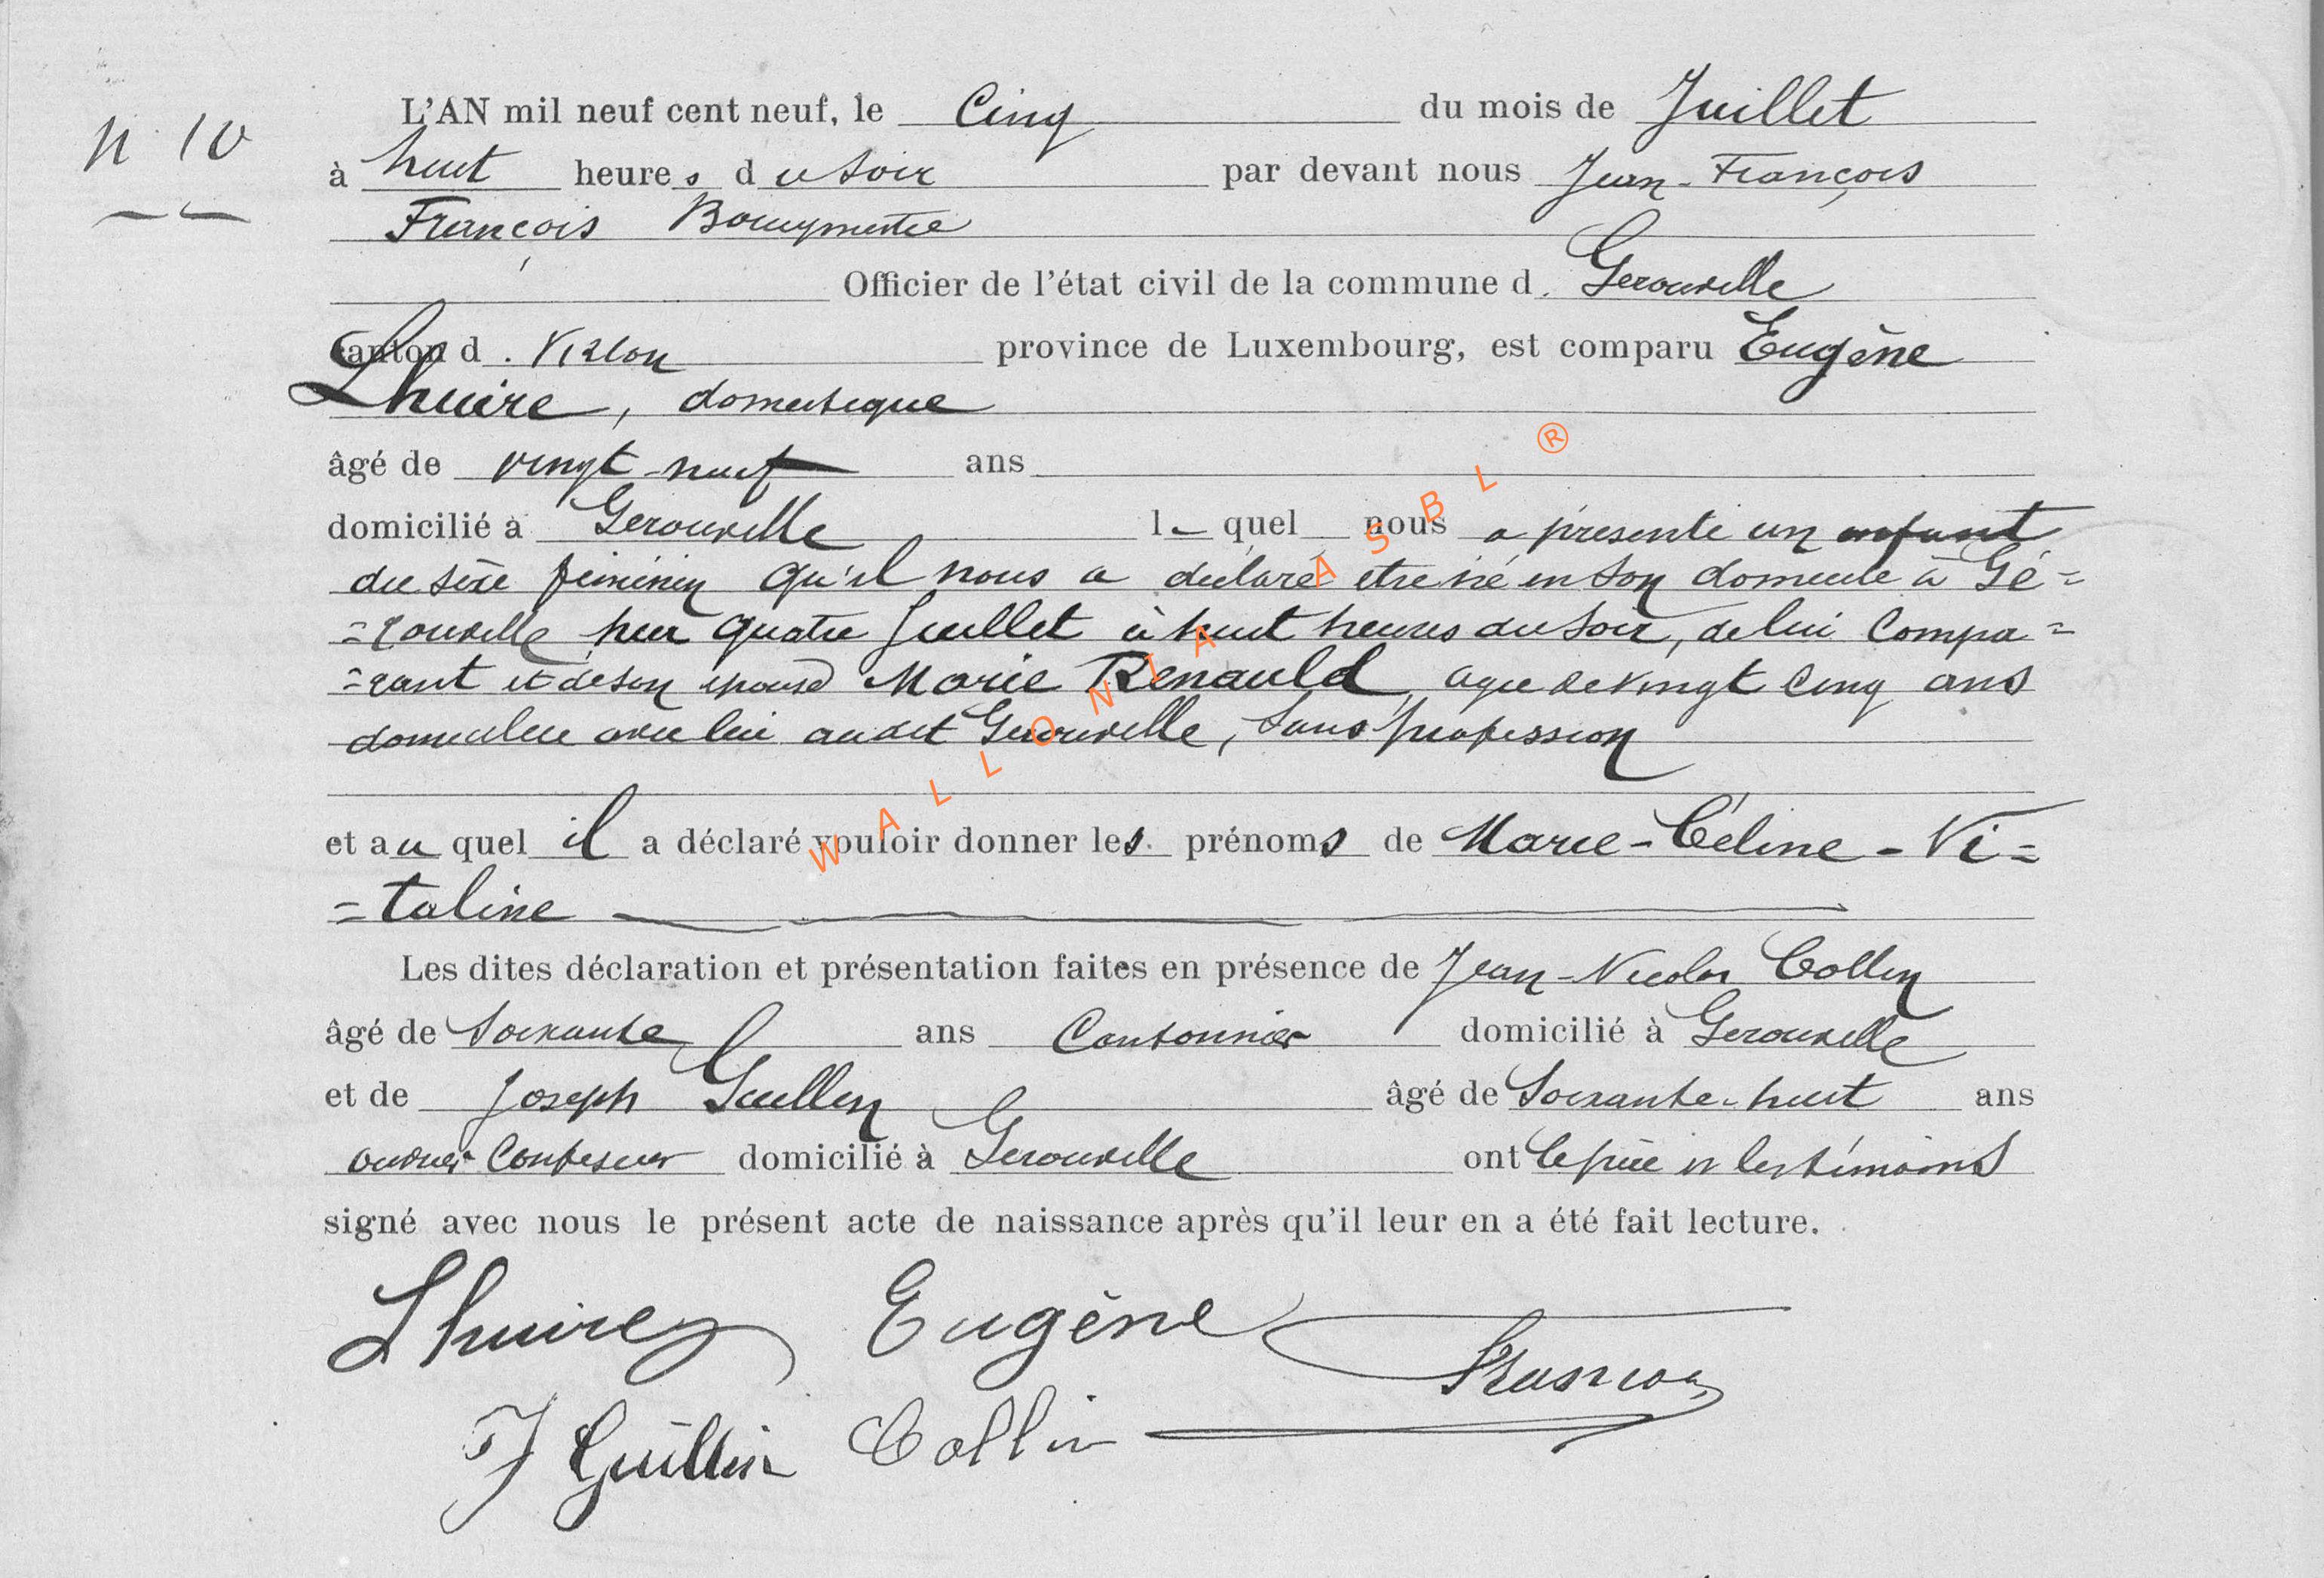 N. 10
L'AN mil neuf cent neuf, le Cinq du mois de Juillet
à huit heures du soir par devant nous Jean-François
François
Officier de l'état civil de la commune d. Gerouville
canton d. Virton province de Luxembourg, est comparu Eugène
Lhuire, domestique
âgé de vingt-neuf ans
domicilié à Gerouville l- quel nous a présenté un enfant
du sexe féminin qu'il nous a déclaré être né en son domicile à Gé=
=rouville hier quatre Juillet à huit heures du soir, de lui Compa=
=rant et de son épouse Marie Renauld, agée de vingt cinq ans
domiciliée avec lui audit Gerouville, sans profession
et au quel il a déclaré vouloir donner les prénoms de Marie-Céline-Vi=
=taline
Les dites déclaration et présentation faites en présence de Jean-Nicolas Collin
âgé de Soixante ans Cantonnier domicilié à Gerouville
et de Joseph Guillin âgé de Soixante-huit ans
ouvrier domicilié à Gerouville ont le père et les témoins
signé avec nous le présent acte de naissance après qu'il leur en a été fait lecture.
Lhuire Eugène
J Guillin Collin
WALLONIA ASBL ®